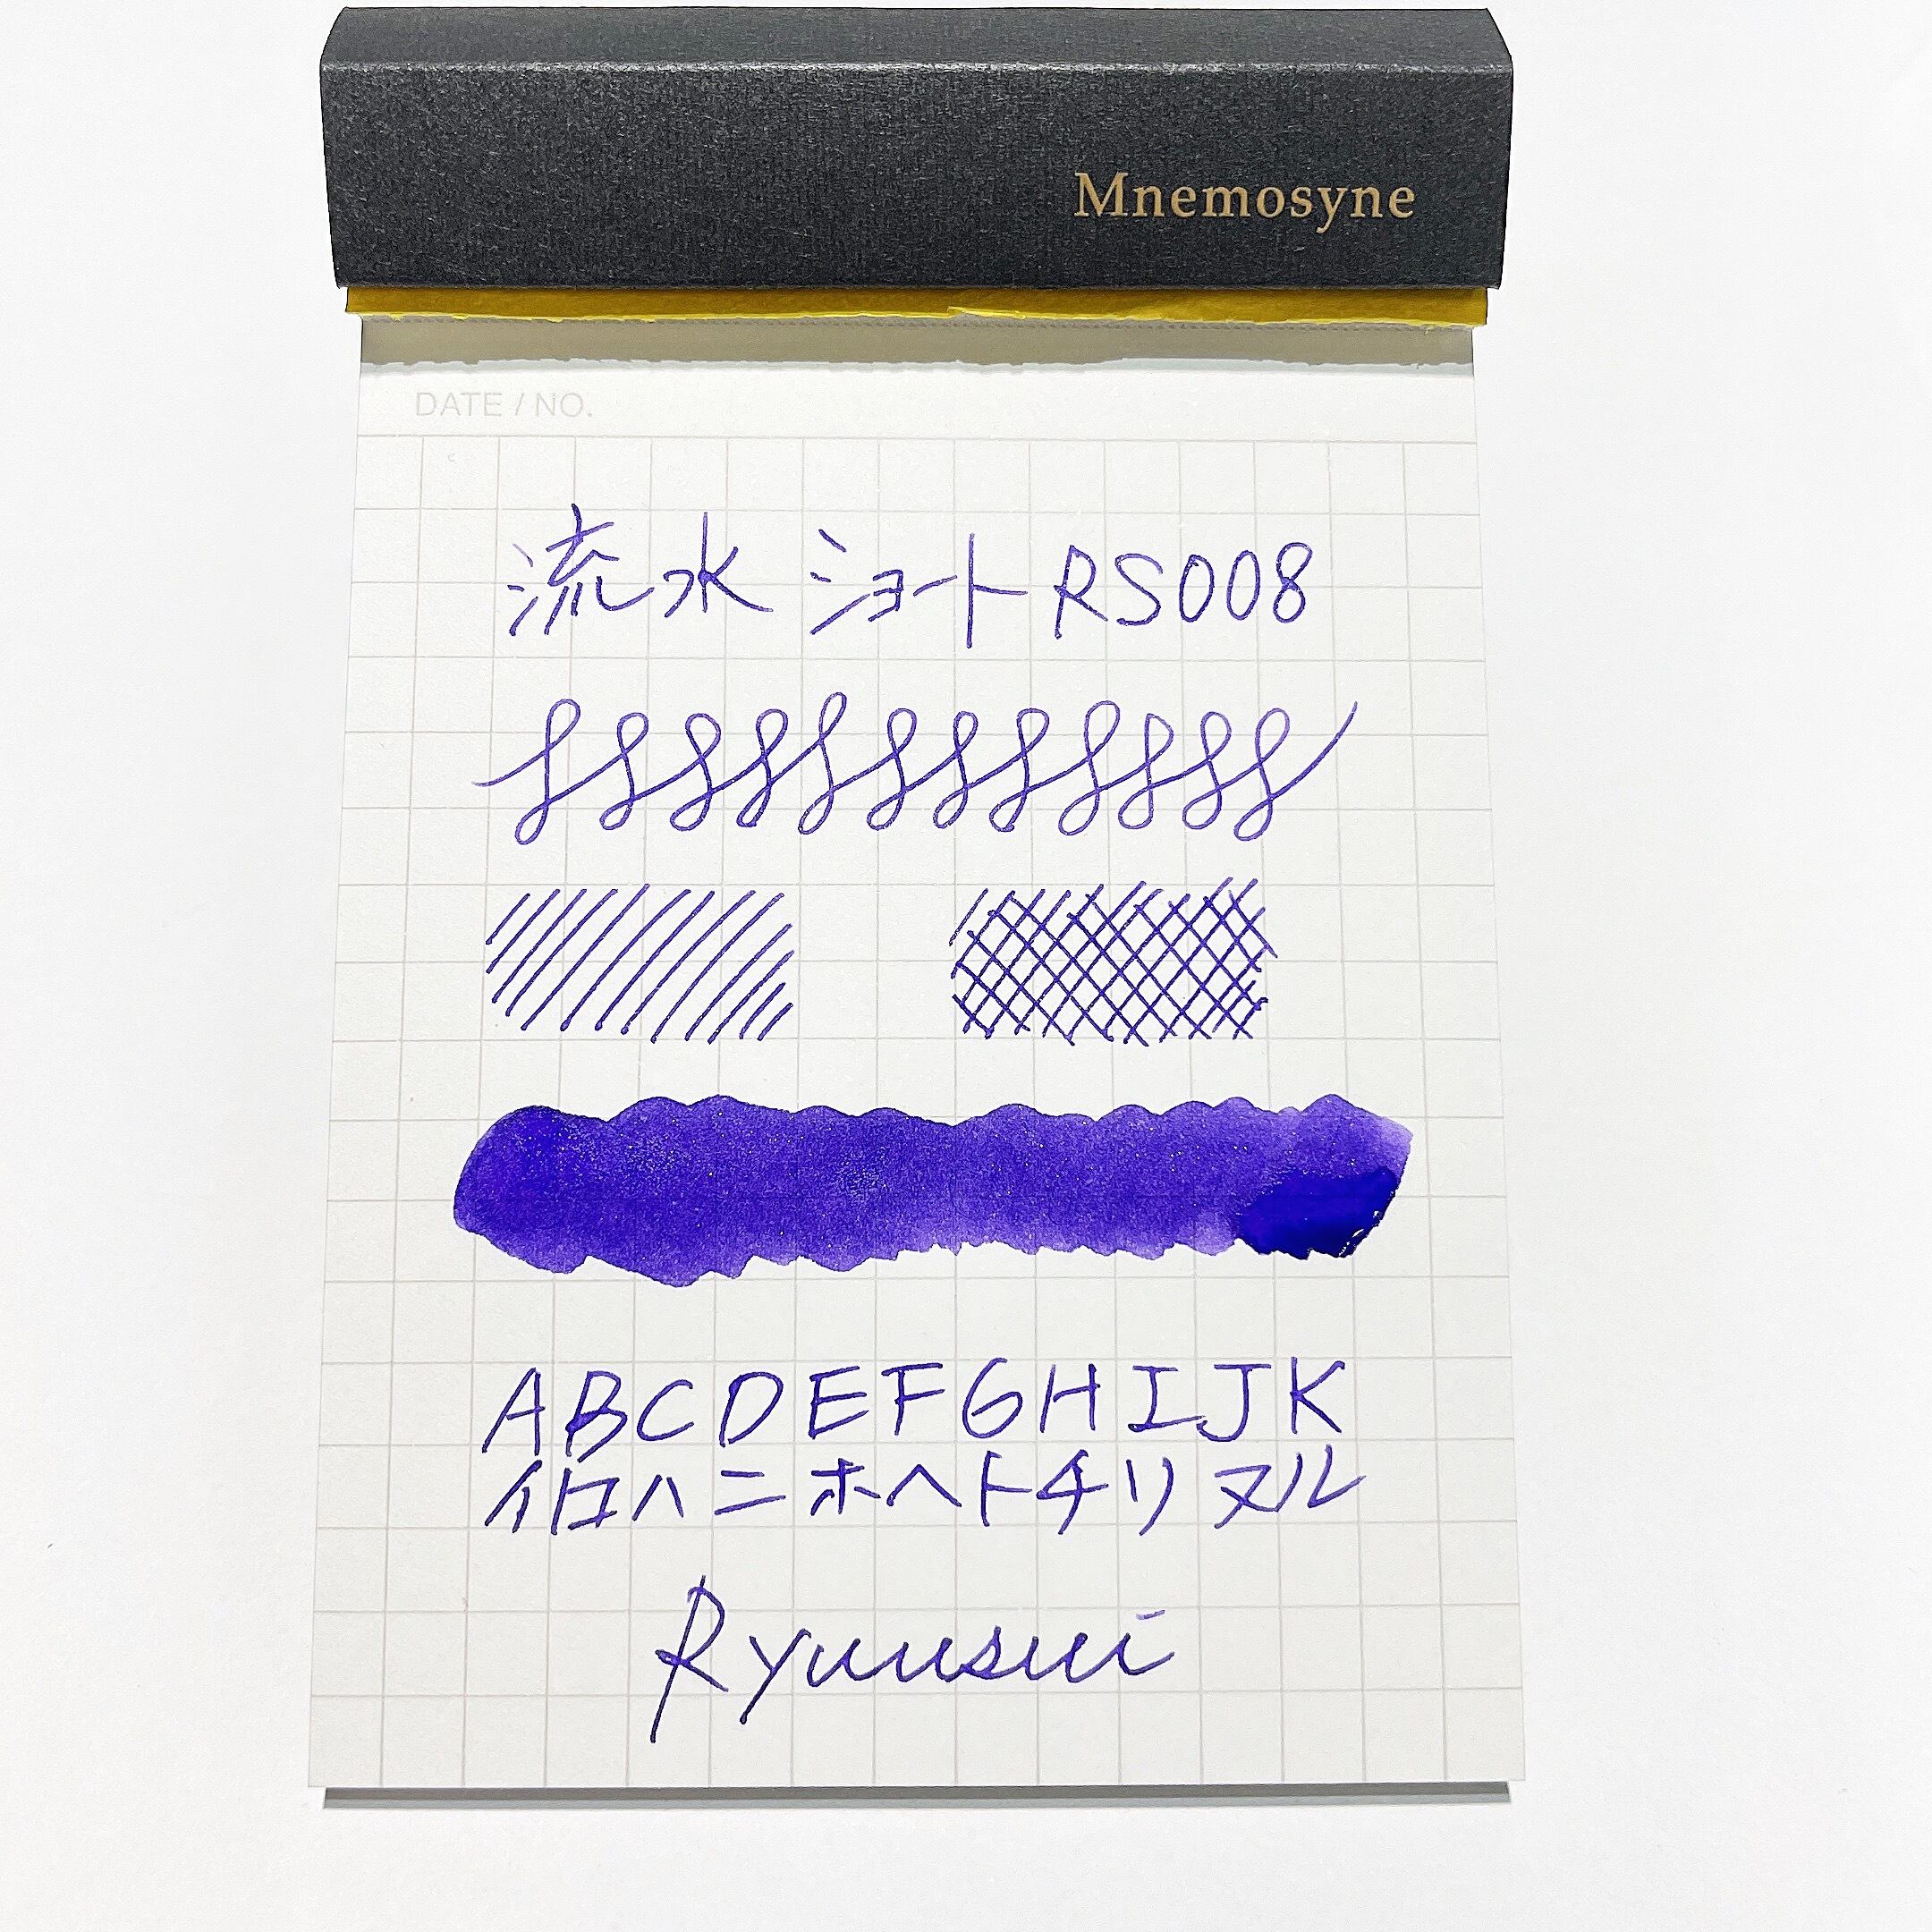 Mnemosyne
DATE / NO.
流水 ショート RS008
ABCDEFGHIJK
イロハニホヘトチリヌル
Ryuusui